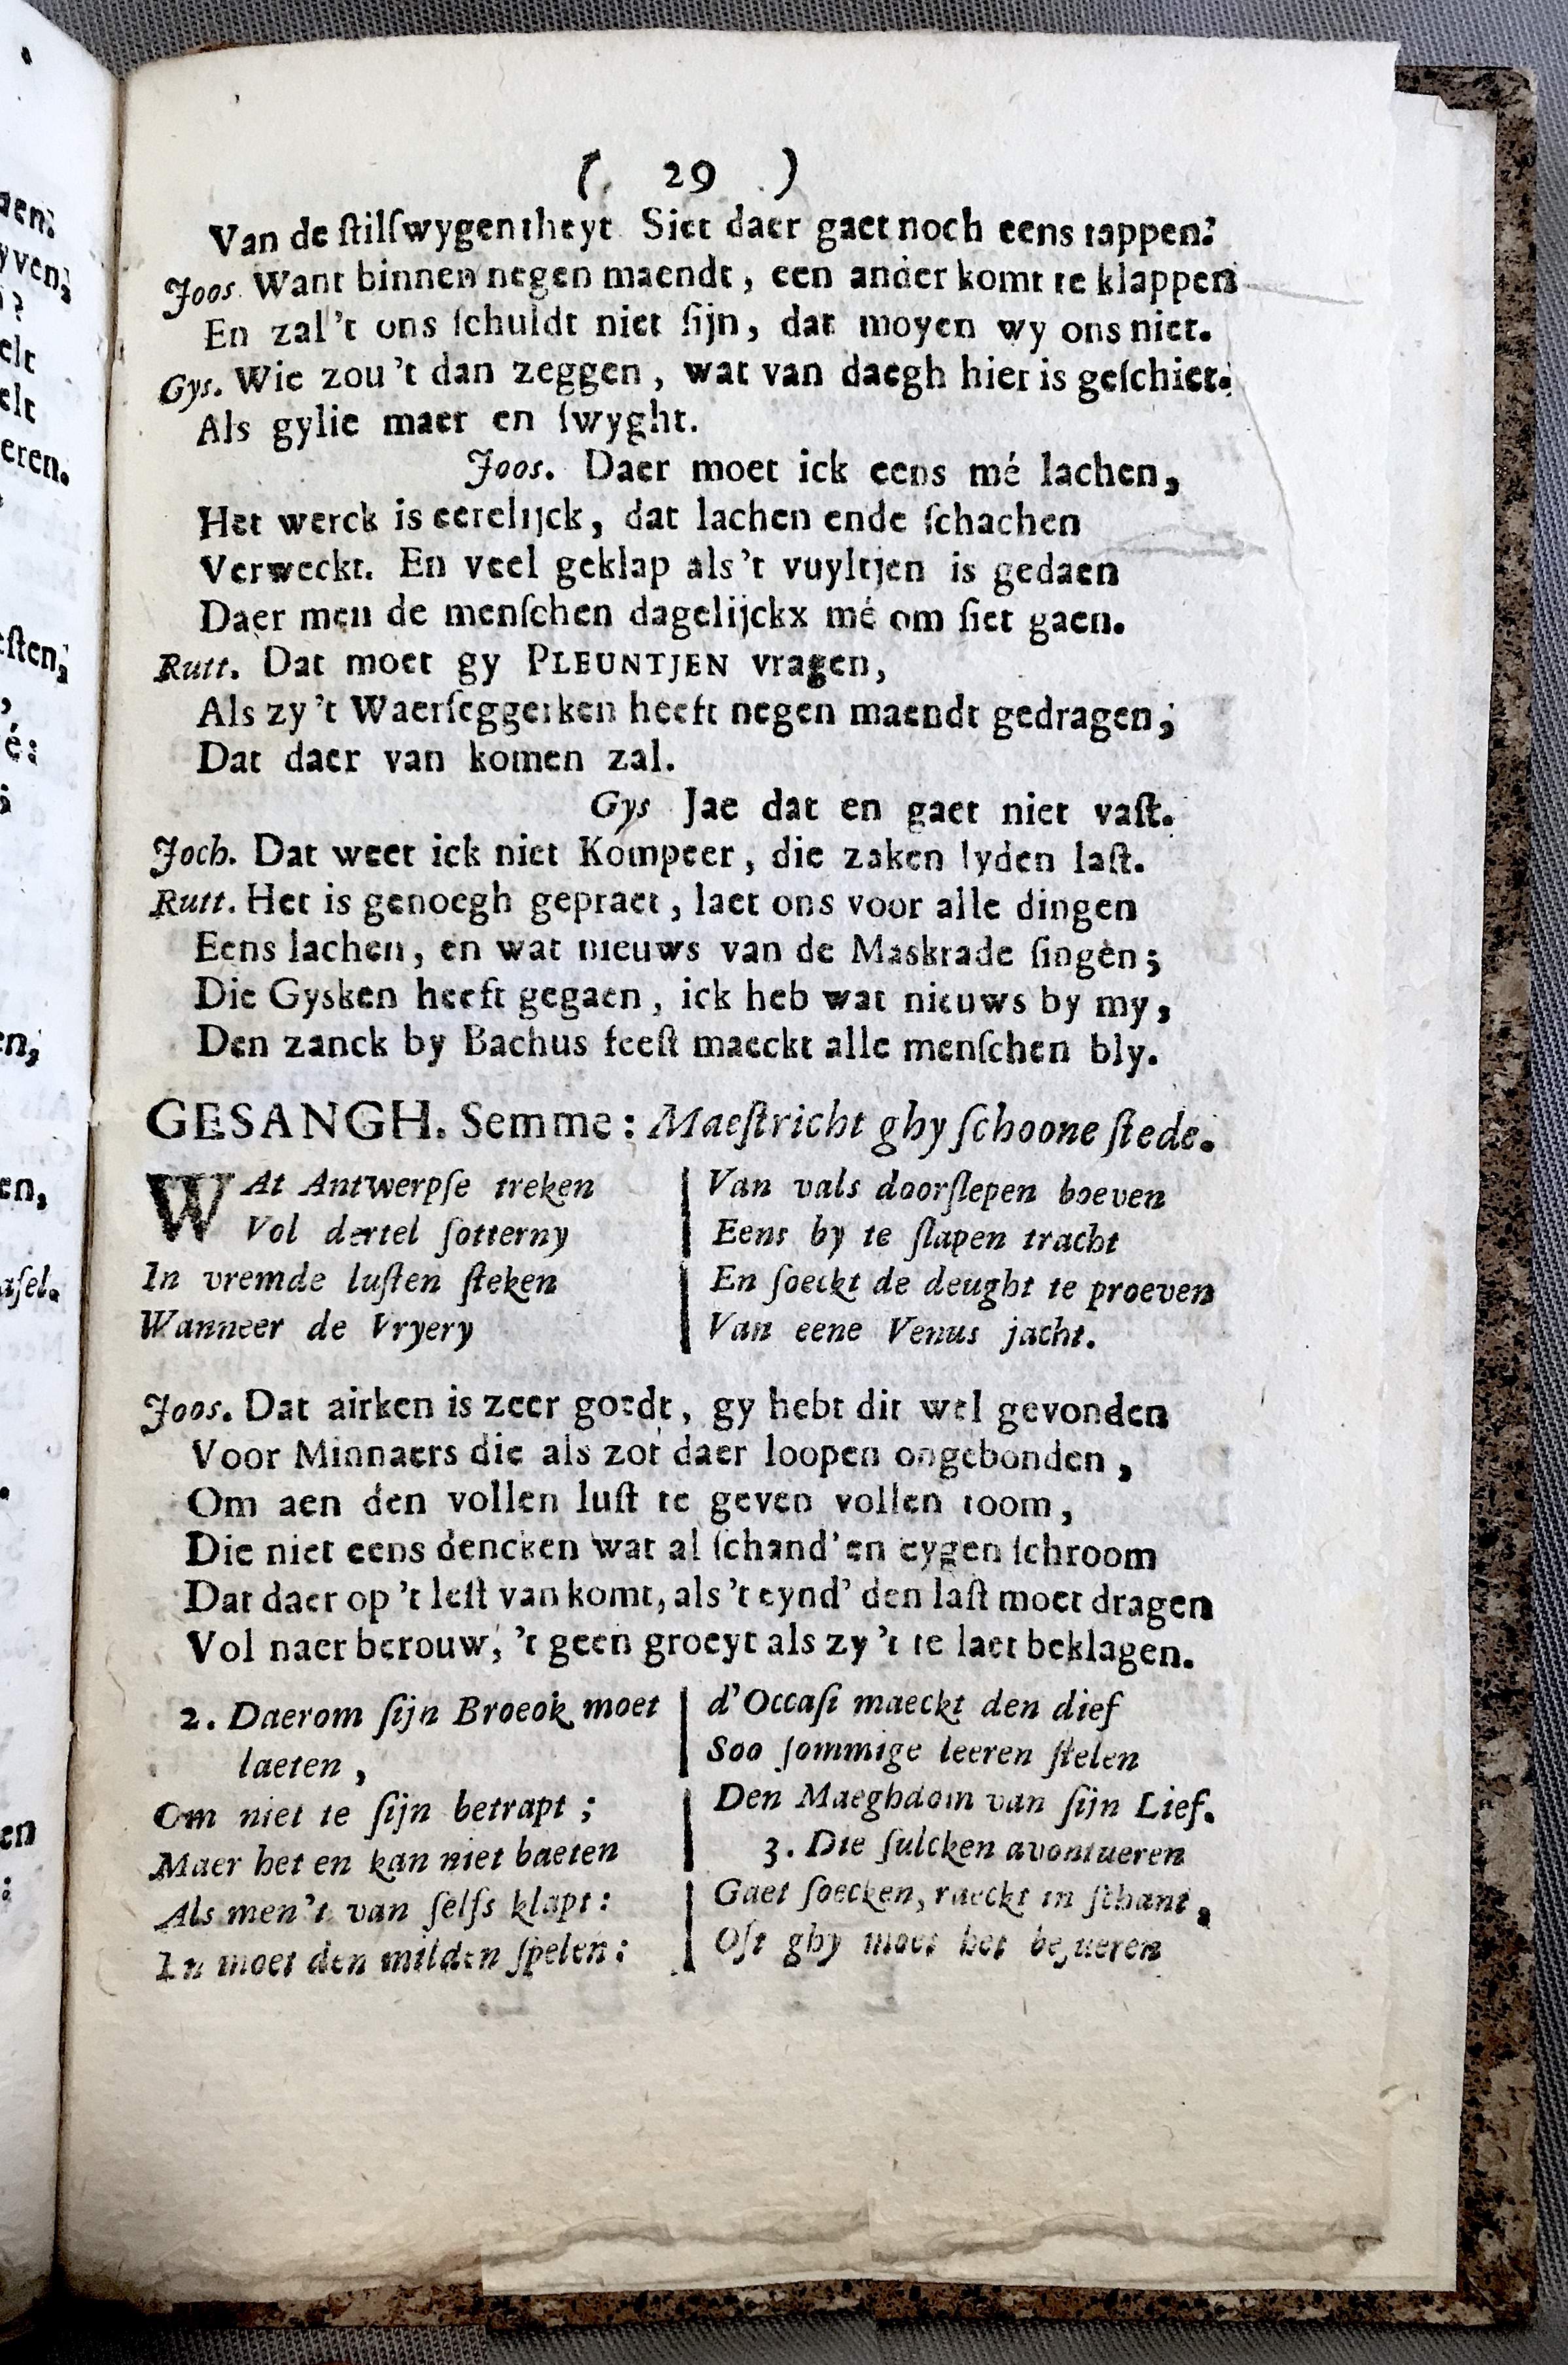 ( 29 )
Van de ſtilſwygentheyt Siet daer gaet noch eens tappen:
Joos. Want binnen negen maendt, een ander komt te klappen
En zal 't ons ſchuldt niet ſijn, dat moyen wy ons niet.
Gys. Wie zou 't dan zeggen, wat van daegh hier is geſchiet.
Als gylie maer en ſwyght.
Joos. Daer moet ick eens mé lachen,
Het werck is eerelijck, dat lachen ende ſchachen
Verweckt. En veel geklap als 't vuyltjen is gedaen
Daer men de menſchen dagelijckx mé om ſiet gaen.
Rutt. Dat moet gy PLEUNTJEN vragen,
Als zy 't Waerſeggerken heeft negen maendt gedragen;
Dat daer van komen zal.
Gys Jae dat en gaet niet vaſt.
Joch. Dat weet ick niet Kompeer, die zaken lyden laſt.
Rutt. Het is genoegh gepraet, laet ons voor alle dingen
Eens lachen, en wat nieuws van de Maskrade ſingen;
Die Gysken heeft gegaen, ick heb wat nieuws by my,
Den zanck by Bachus feeſt maeckt alle menſchen bly.
GESANGH. Semme: Maeſtricht ghy ſchoone ſtede.
WAt Antwerpſe treken
Vol dertel ſotterny
In vremde luſten ſteken
Wanneer de Vryery
Van vals doorſlepen boeven
Eens by te ſlapen tracht
En ſoeckt de deught te proeven
Van eene Venus jacht.
Joos. Dat airken is zeer goedt, gy hebt dit wel gevonden
Voor Minnaers die als zot daer loopen ongebonden,
Om aen den vollen luſt te geven vollen toom,
Die niet eens dencken wat al ſchand' en eygen ſchroom
Dat daer op 't leſt van komt, als 't eynd' den laſt moet dragen
Vol naer berouw, 't geen groeyt als zy 't te laet beklagen.
2. Daerom ſijn Broeok moet
laeten,
Om niet te ſijn betrapt;
Maer het en kan niet baeten
Als men 't van ſelfs klapt:
In moet den milden ſpelen:
d'Occaſi maeckt den dief
Soo ſommige leeren ſtelen
Den Maeghdom van ſijn Lief.
3. Die ſulcken avontueren
Gaet ſoecken, raeckt in ſchant,
Oft ghy moet het bezueren